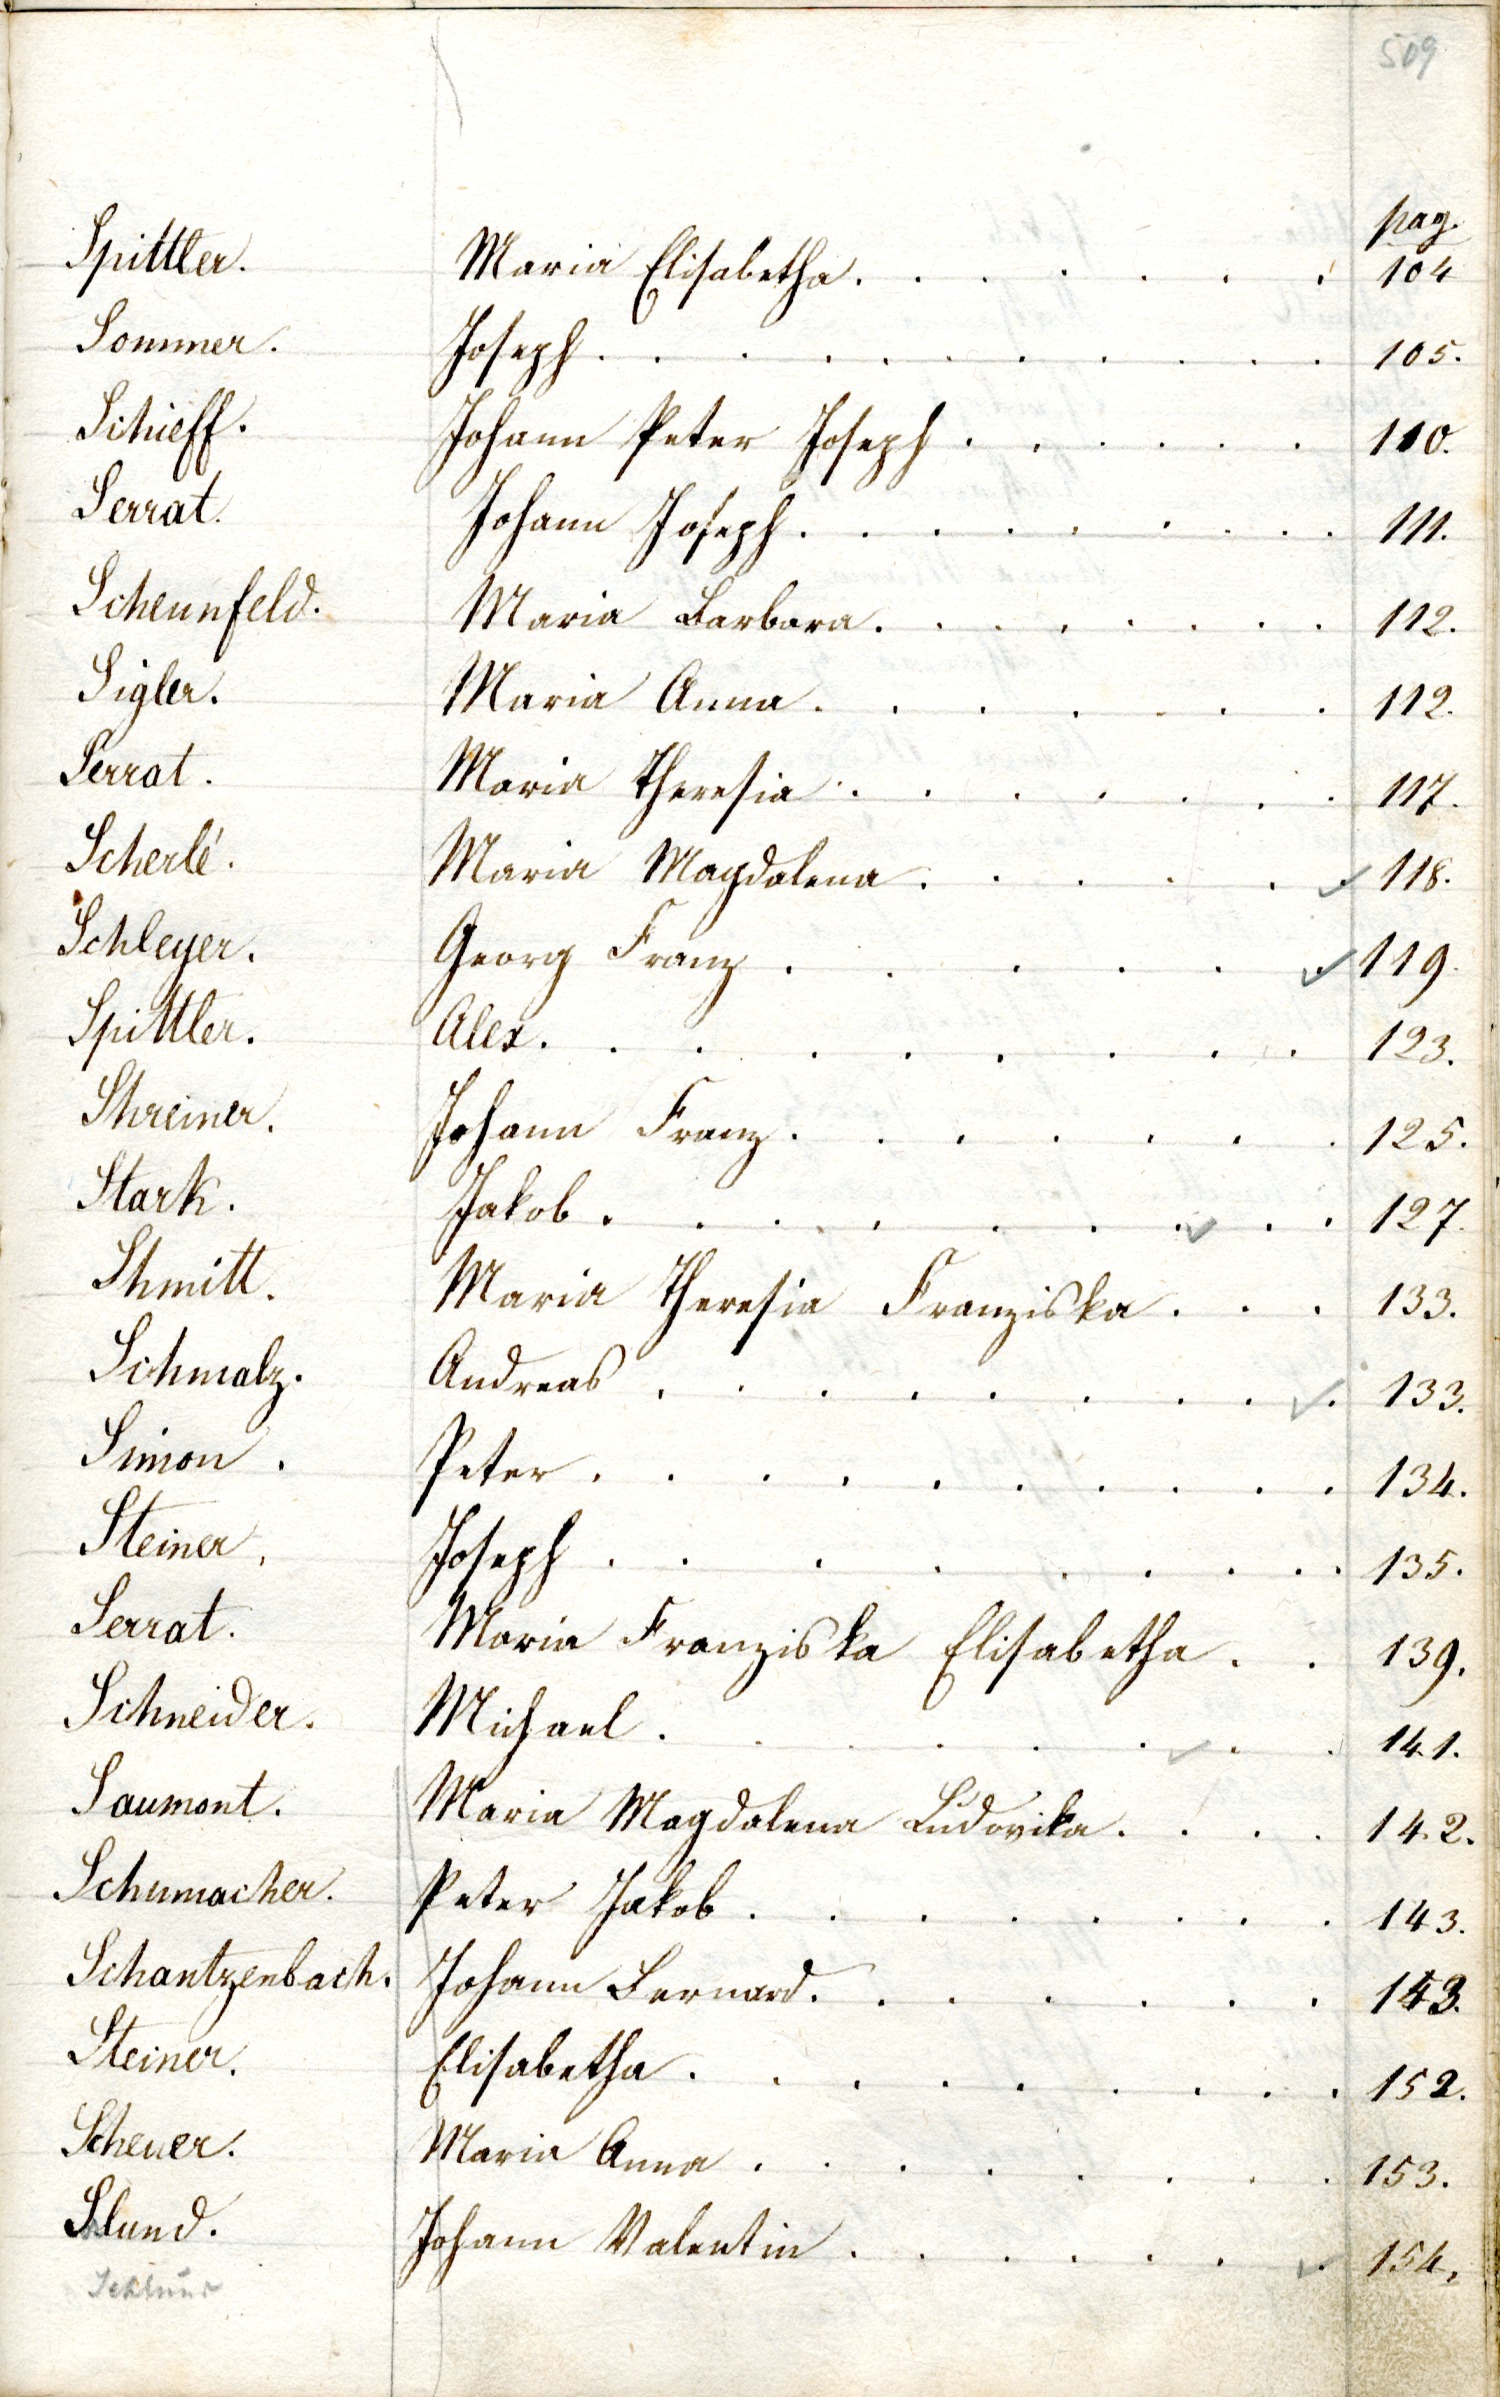 509
pag.
Spittler. Maria Elisabetha. . . . . . . 104
Sommer. Joseph. . . . . . . . . . 105.
Schieff. Johann Peter Joseph . . . . . . 110.
Serrat. Johann Joseph. . . . . . . . . 111.
Scheunfeld. Maria Barbara. . . . . . . . 112.
Sigler. Maria Anna. . . . . . . 112.
Serrat. Maria Theresia . . . . . . . 117.
Scherlé. Maria Magdalena . . . . . ✓ 118.
Schleyer. Georg Franz . . . . . ✓ 119.
Spittler. Alex. . . . . . . . . . 123.
Shreiner. Johann Franz. . . . . . . . 125.
Stark. Jakob . . . . . . . ✓ . . 127.
Shmitt. Maria Theresia Franziska . . . 133.
Schmalz. Andreas . . . . . . . . ✓ . 133.
Simon . Peter . . . . . . . . . . 134.
Steiner. Joseph . . . . . . . . . 135.
Serrat. Maria Franziska Elisabetha . . 139.
Schneider. Michael . . . . . . ✓ . . 141.
Saumont. Maria Magdalena Ludovika. . . . 142.
Schumacher. Peter Jakob . . . . . . . . 143.
Schantzenbach. Johann Bernard. . . . . . . . 143.
Steiner. Elisabetha . . . . . . . . . 152.
Scheuer. Maria Anna . . . . . . . . 153.
Slund. Johann Valentin . . . . . . ✓ . 154.